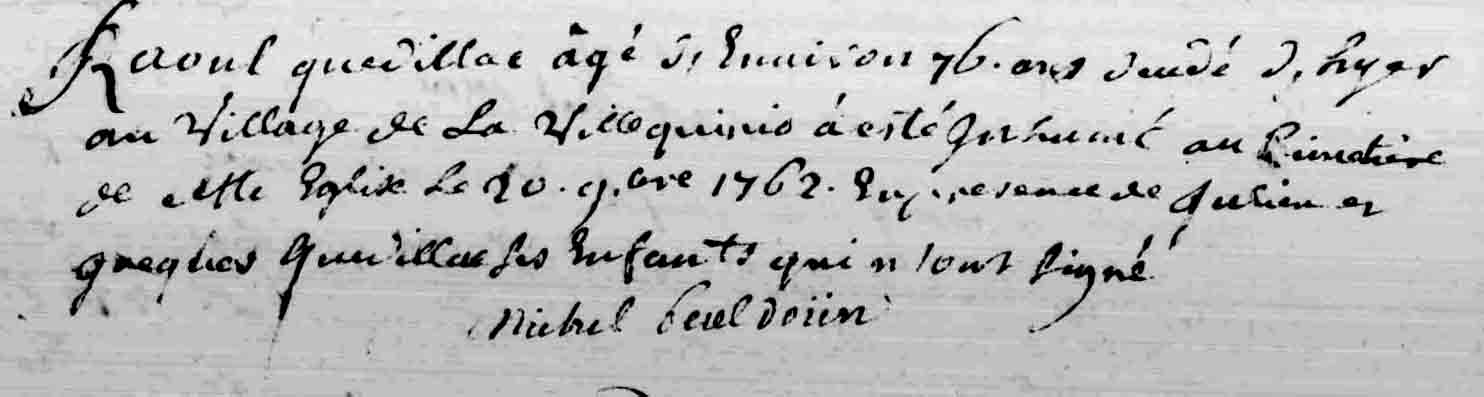 Raoul quedillac âgé de Environ 76. ans decedé d'hyer
au Village de La Villequinio á esté Inhumé au Cimetiere
de cette Eglise Le 20. 9.bre 1762. En presence de Julien et
Quedillac ses Enfants qui n'ont signé
Michel